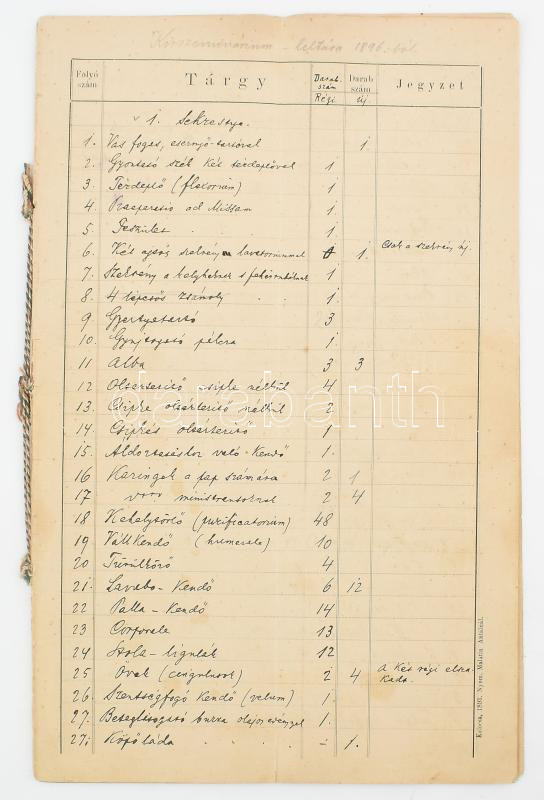 Kisszeminárium - leltára 1896.-ból.
Folyó szám Tárgy Darabszám Régi Darabszám Új Jegyzet
1. Sekrestye.
1. Vas fogas, esernyő-tartóval 1
2. Gyontató szék két térdeplővel 1
3. Térdeplő (flexorium) 1
4. Praeparatio ad Missam 1
5. Feszület 1
6. Két ajtós szekrény lavatoriummal 1 Csak a szekrény új.
7. Szekrény a kelyheknek s fehérruháknak 1
8. 4 lépcsős zsámoly 1
9 Gyertyatartó 3
10. Gyujtogató pálca 1
11 Alba 3 3
12 Oltárterítő csipke nélkül 4
13. Csipke oltárterítő nélkül 2
14. Csipkés oltárterítő 1
15. Áldoztatáshoz való kendő 1.
16 Karingek a pap számára 2 1
17 ministránsoknak 2 4
18 Kehelytörlő (purificatorium) 48
19 Vállkendő (humerale) 10
20 Törülköző 4
21. Lavabo-kendő 6 12
22 Palla-kendő 14
23 Corporale 13
24 Stola- 12
25 Övek (cingulusok) 2 4 A két régi elszakadt.
26. Szentségfogó kendő (velum) 1.
27. Beteglátogató burza olajos edénnyel 1.
27. Köpőláda - 1.
Kalocsa, 1893. Nyom. Malatin Antalnál.
darabanth